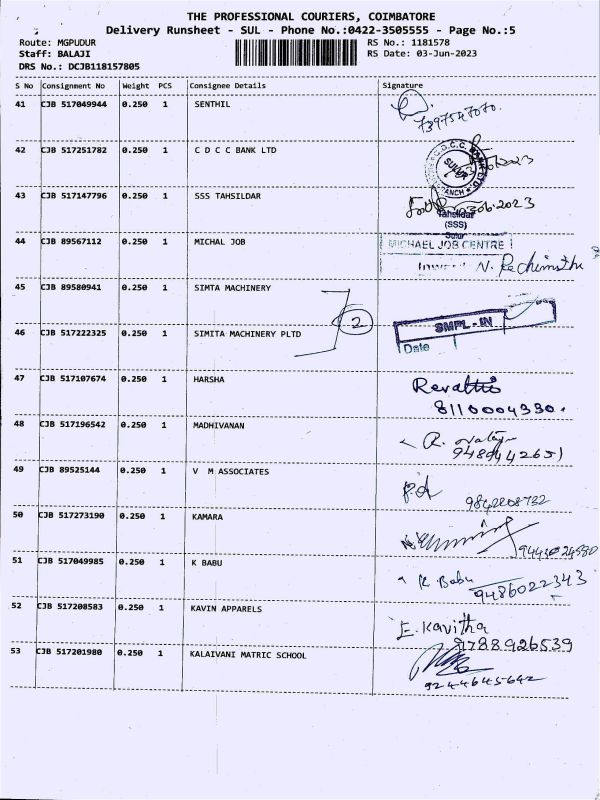 THE PROFESSIONAL COURIERS, COIMBATORE
Delivery Runsheet - SUL - Phone No.:0422-3505555 - Page No.:5
Route: MGPUDUR RS No.: 1181578
Staff: BALAJI RS Date: 03-Jun-2023
DRS No.: DCJB118157805
S No Consignment No Weight PCS Consignee Details Signature
41 CJB 517049944 0.250 1 SENTHIL
7397547070.
42 CJB 517251782 0.250 1 C D C C BANK LTD
43 CJB 517147796 0.250 1 SSS TAHSILDAR
03.06.2023
Tahsildar
(SSS)
Sulur
44 CJB 89567112 0.250 1 MICHAL JOB MICHAEL JOB CENTRE
45 CJB 89580941 0.250 1 SIMTA MACHINERY
2
SMPL-IN
46 CJB 517222325 0.250 1 SIMITA MACHINERY PLTD
Date
47 CJB 517107674 0.250 1 HARSHA Revathi
8110004330.
48 CJB 517196542 0.250 1 MADHIVANAN
9489442651
49 CJB 89525144 0.250 1 V M ASSOCIATES
9842208732
50 CJB 517273190 0.250 1 KAMARA
9443024580
51 CJB 517049985 0.250 1 K BABU K Babu
9486022343
52 CJB 517208583 0.250 1 KAVIN APPARELS E. Kavitha
9788926539
53 CJB 517201980 0.250 1 KALAIVANI MATRIC SCHOOL
9244645642